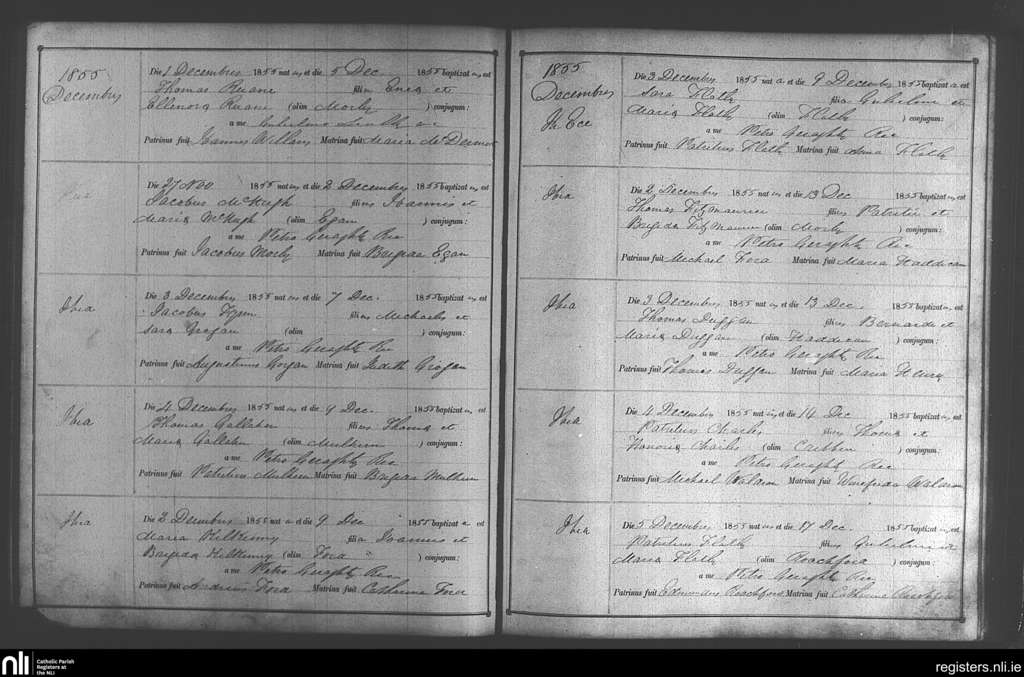 1855
Decembris
Die 1 Decembris 1855 nat us et die 5 Dec. 1855 baptizat us est
Thomas Ruane filius et
Ellenora Ruane (olim Morly ) conjugum:
a me
Patrinus fuit Joannes Matrina fuit Maria McDermot
Die 27 Nov 1855 nat us et die 2 Decembris 1855 baptizat us est
Jacobus McHugh filius Joannis et
Maria McHugh (olim Egan ) conjugum:
a me Petro Geraghty
Patrinus fuit Jacobus Morly Matrina fuit Brigida Egan
Ibia
Die 3 Decembris 1855 nat us et die 7 Dec. 1855 baptizat us est
Jacobus filius Michaelis et
Sara Grogan (olim ) conjugum:
a me Petro Geraghty
Patrinus fuit Augustinus Grogan Matrina fuit Judith Grogan
Ibia
Die 4 Decembris 1855 nat us et die 9 Dec. 1855 baptizat us est
Thomas Gallahen filius Thoma et
Maria Gallahen (olim Mulkern ) conjugum:
a me Petro Geraghty
Patrinus fuit Patritius Mulkern Matrina fuit Brigida Mulkern
Ibia
Die 2 Decembris 1855 nat a et die 9 Dec 1855 baptizat a est
Maria Kilkenny filia Joannis et
Brigida Kilkenny (olim Fora ) conjugum:
a me Petro Geraghty
Patrinus fuit Andreas Fora Matrina fuit Catherina Fora
1855
Decembris
Die 3 Decembris 1855 nat a et die 9 Decembris 1855 baptizat a est
Sara Flatly filia Gulielmi et
Maria Flatly (olim Flatly ) conjugum:
a me Petro Geraghty
Patrinus fuit Patritius Flatly Matrina fuit Anna Flatly
Ibia
Die 2 Decembris 1855 nat us et die 13 Dec 1855 baptizat us est
Thomas Fitzmaurice filius Patritii et
Brigida Fitzmaurice (olim Morly ) conjugum:
a me Petro Geraghty
Patrinus fuit Michael Fora Matrina fuit Maria Haddican
Ibia
Die 3 Decembris 1855 nat us et die 13 Dec 1855 baptizat us est
Thomas Duggan filius Bernardi et
Maria Duggan (olim Haddican ) conjugum:
a me Petro Geraghty
Patrinus fuit Thomas Duggan Matrina fuit Maria Henry
Ibia
Die 4 Decembris 1855 nat us et die 14 Dec 1855 baptizat us est
Patritius Charles filius Thoma et
Honoria Charles (olim Cribbin ) conjugum:
a me Petro Geraghty
Patrinus fuit Michael Waldron Matrina fuit Winefrida Waldron
Ibia
Die 5 Decembris 1855 nat us et die 17 Dec. 1855 baptizat us est
Patritius Flatly filius Gulielmi et
Maria Flatly (olim Roachford ) conjugum:
a me Petro Geraghty
Patrinus fuit Edmundus Roachford Matrina fuit Catherina Roachford
nli
Catholic Parish
Registers at
the NLI
registers.nli.ie